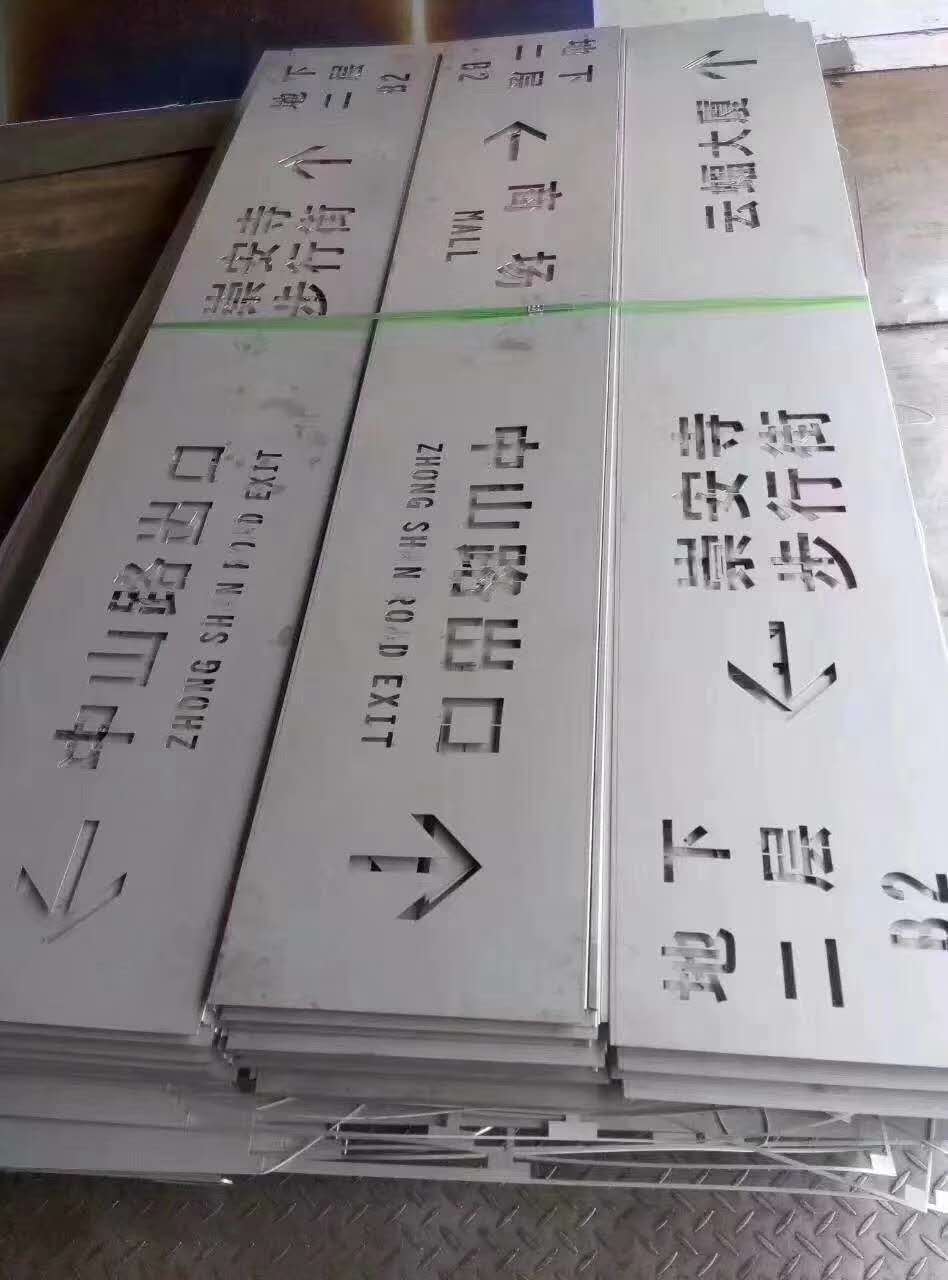 中山路出口
ZHONG SHAN ROAD EXIT
崇安寺
步行街
地下
二层
B2
地下
二层
B2
商场
MALL
中山路出口
ZHONG SHAN ROAD EXIT
地下
二层
B2
崇安寺
步行街
云蝠大厦